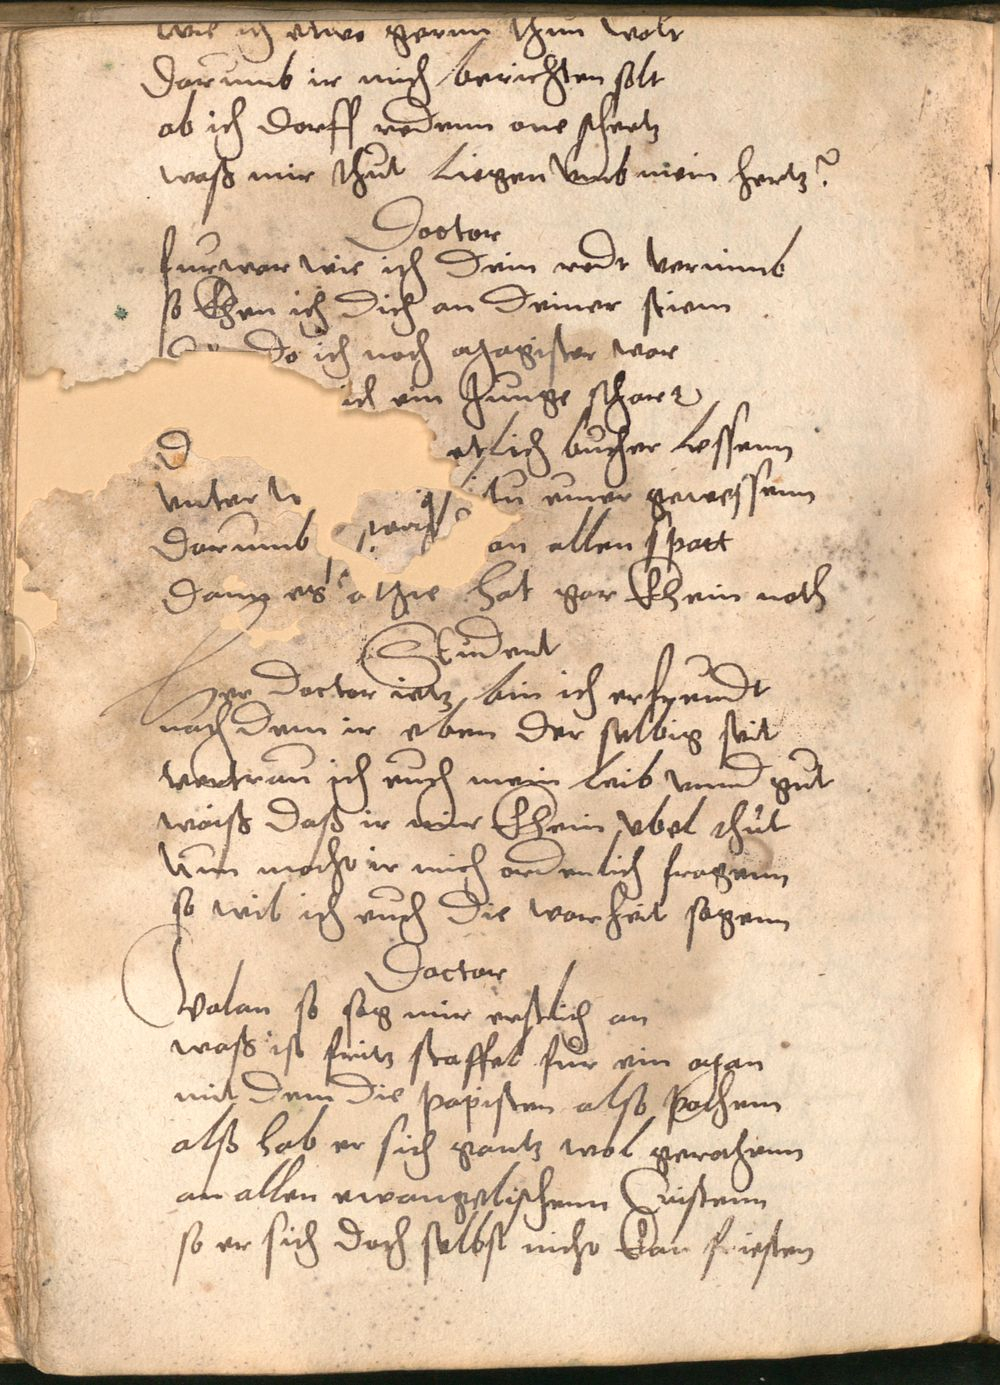 wie ich etwo gernn thun wolt
Darumb ir mich berichten solt
ob ich dorff redenn one schertz
waß mir thut liegen vmb mein hertz?
Doctor
furwar wie ich dein redt vernimb
so khen ich dich an deiner stiem
do ich noch magister war
ich ein Junge schar
D etlich bucher lessenn
vnter einer gewessenn
Darumb on allen spott
Dann es hat gar khein noth
Student
Her doctor ietz bin ich erfreudt
nach dem ir eben der selbig seit
vertrau ich euch mein leib vnnd gut
waiß daß ir mir khein vbel thut
Nun mocht ir mich ordenlich fragenn
so wil ich euch die warheit sagenn
Doctor
Wolan so sag mir erstlich an
waß ist fritz staffel für ein man
mit dem die papisten also pochenn
alß hab er sich gantz wol gerochenn
an allen ewangelischenn Cristenn
so er sich doch selbst nicht kan fristen